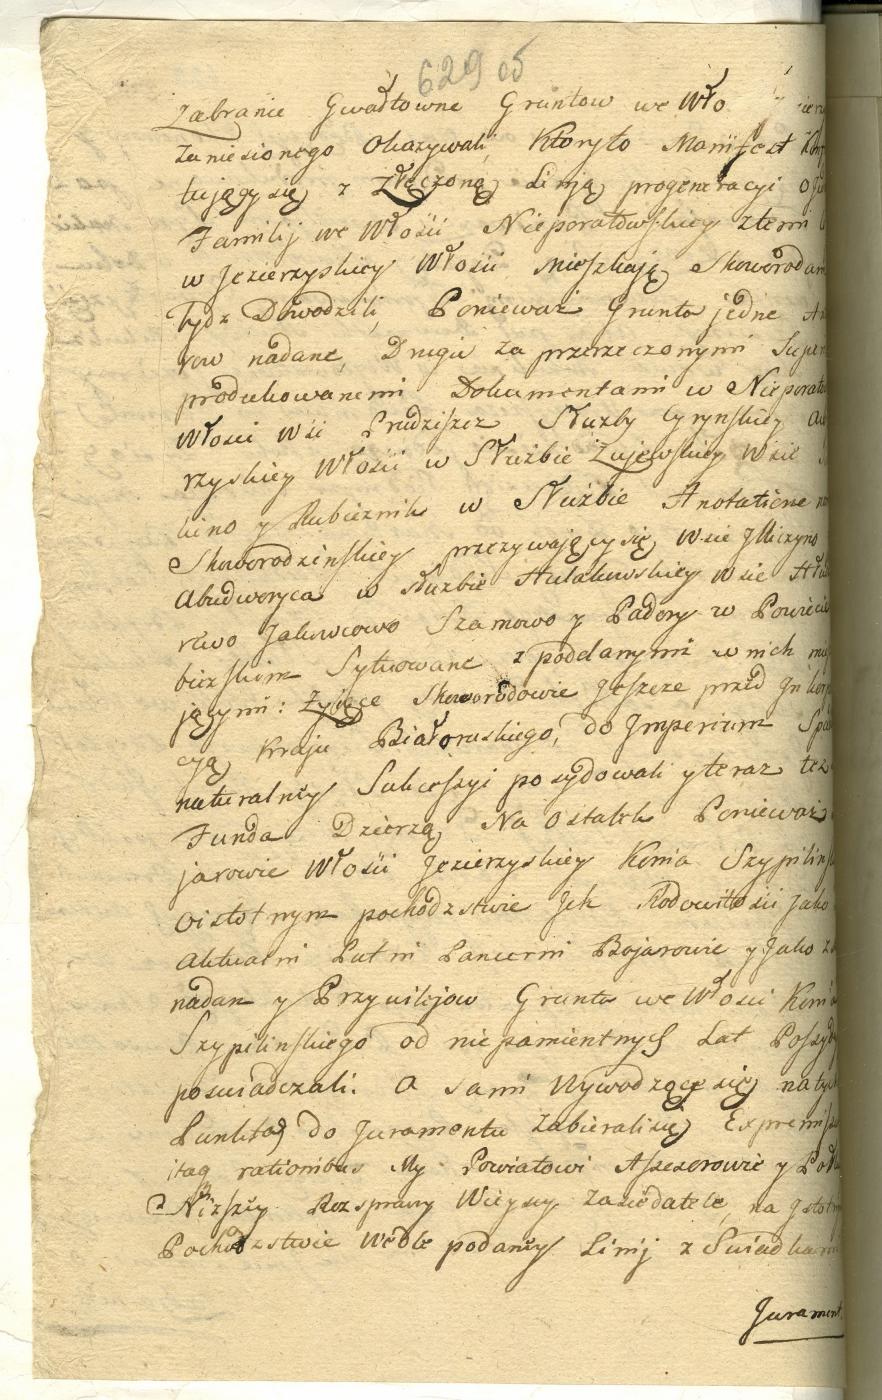 629 об
Zabranie Gwałtowne Gruntow we Wło
Zaniesionego Okazywali, Ktoryto Manifest
tujący się z Złączoną Linją progeneracyi
Familij we Włosci Nieporatowskiey ztemi
w Jezierzyskiey Włosci Mieszkają Skoworodam
tydz Dowodzili, Ponieważ Grunta jedne
row nadane, Drugie za przerzeczonymi
produkowanemi Dokumentami w Nieporato
Włosci Wsi Prudziszcz Służby Gryńskiey
rzyskiey Włosci w Służbie Zujewskiey Wsie
kino y Rubieznik w Służbie Anotaticne
Skoworodzinskiey przezywający się, Wsie
Abudworyca w służbie Hulakowskiey wsie
rewo Jakowcowo Szamowo y Padory w Powiecie
bieżskim Sytuowane z poddanymi w nich
jącymi: Zyiące Skoworodowie Jeszcze przed
cyą Kraju Białoruskiego, do Imperium
naturalney Sukcessyi possydowali y teraz też
Funda Dzierzą, Na Ostatek Ponieważ
jarowie Włosci Jezierzyskiey Konia Szypilinsk
O istotnym pochodzstwie Ich Rodowitosci jako
Aktualni Putni Pancerni Bojarowie y Jako
nadan y Przywilejow Grunta we Włosci Konia
Szypilinskiego od niepamientnych Lat Possyd
poswiadczali. A sami Wywodzące się na tych
Punktach do Juramentu Zabierali się, Expremiss
itaq rationibus My Powiatowi Assesorowie y
Nizszey Rozsprawy Wieyscy Zasiedatele, na Istotn
Pochodzstwie Wedle podaney Linij z Swiadkami
Jurament